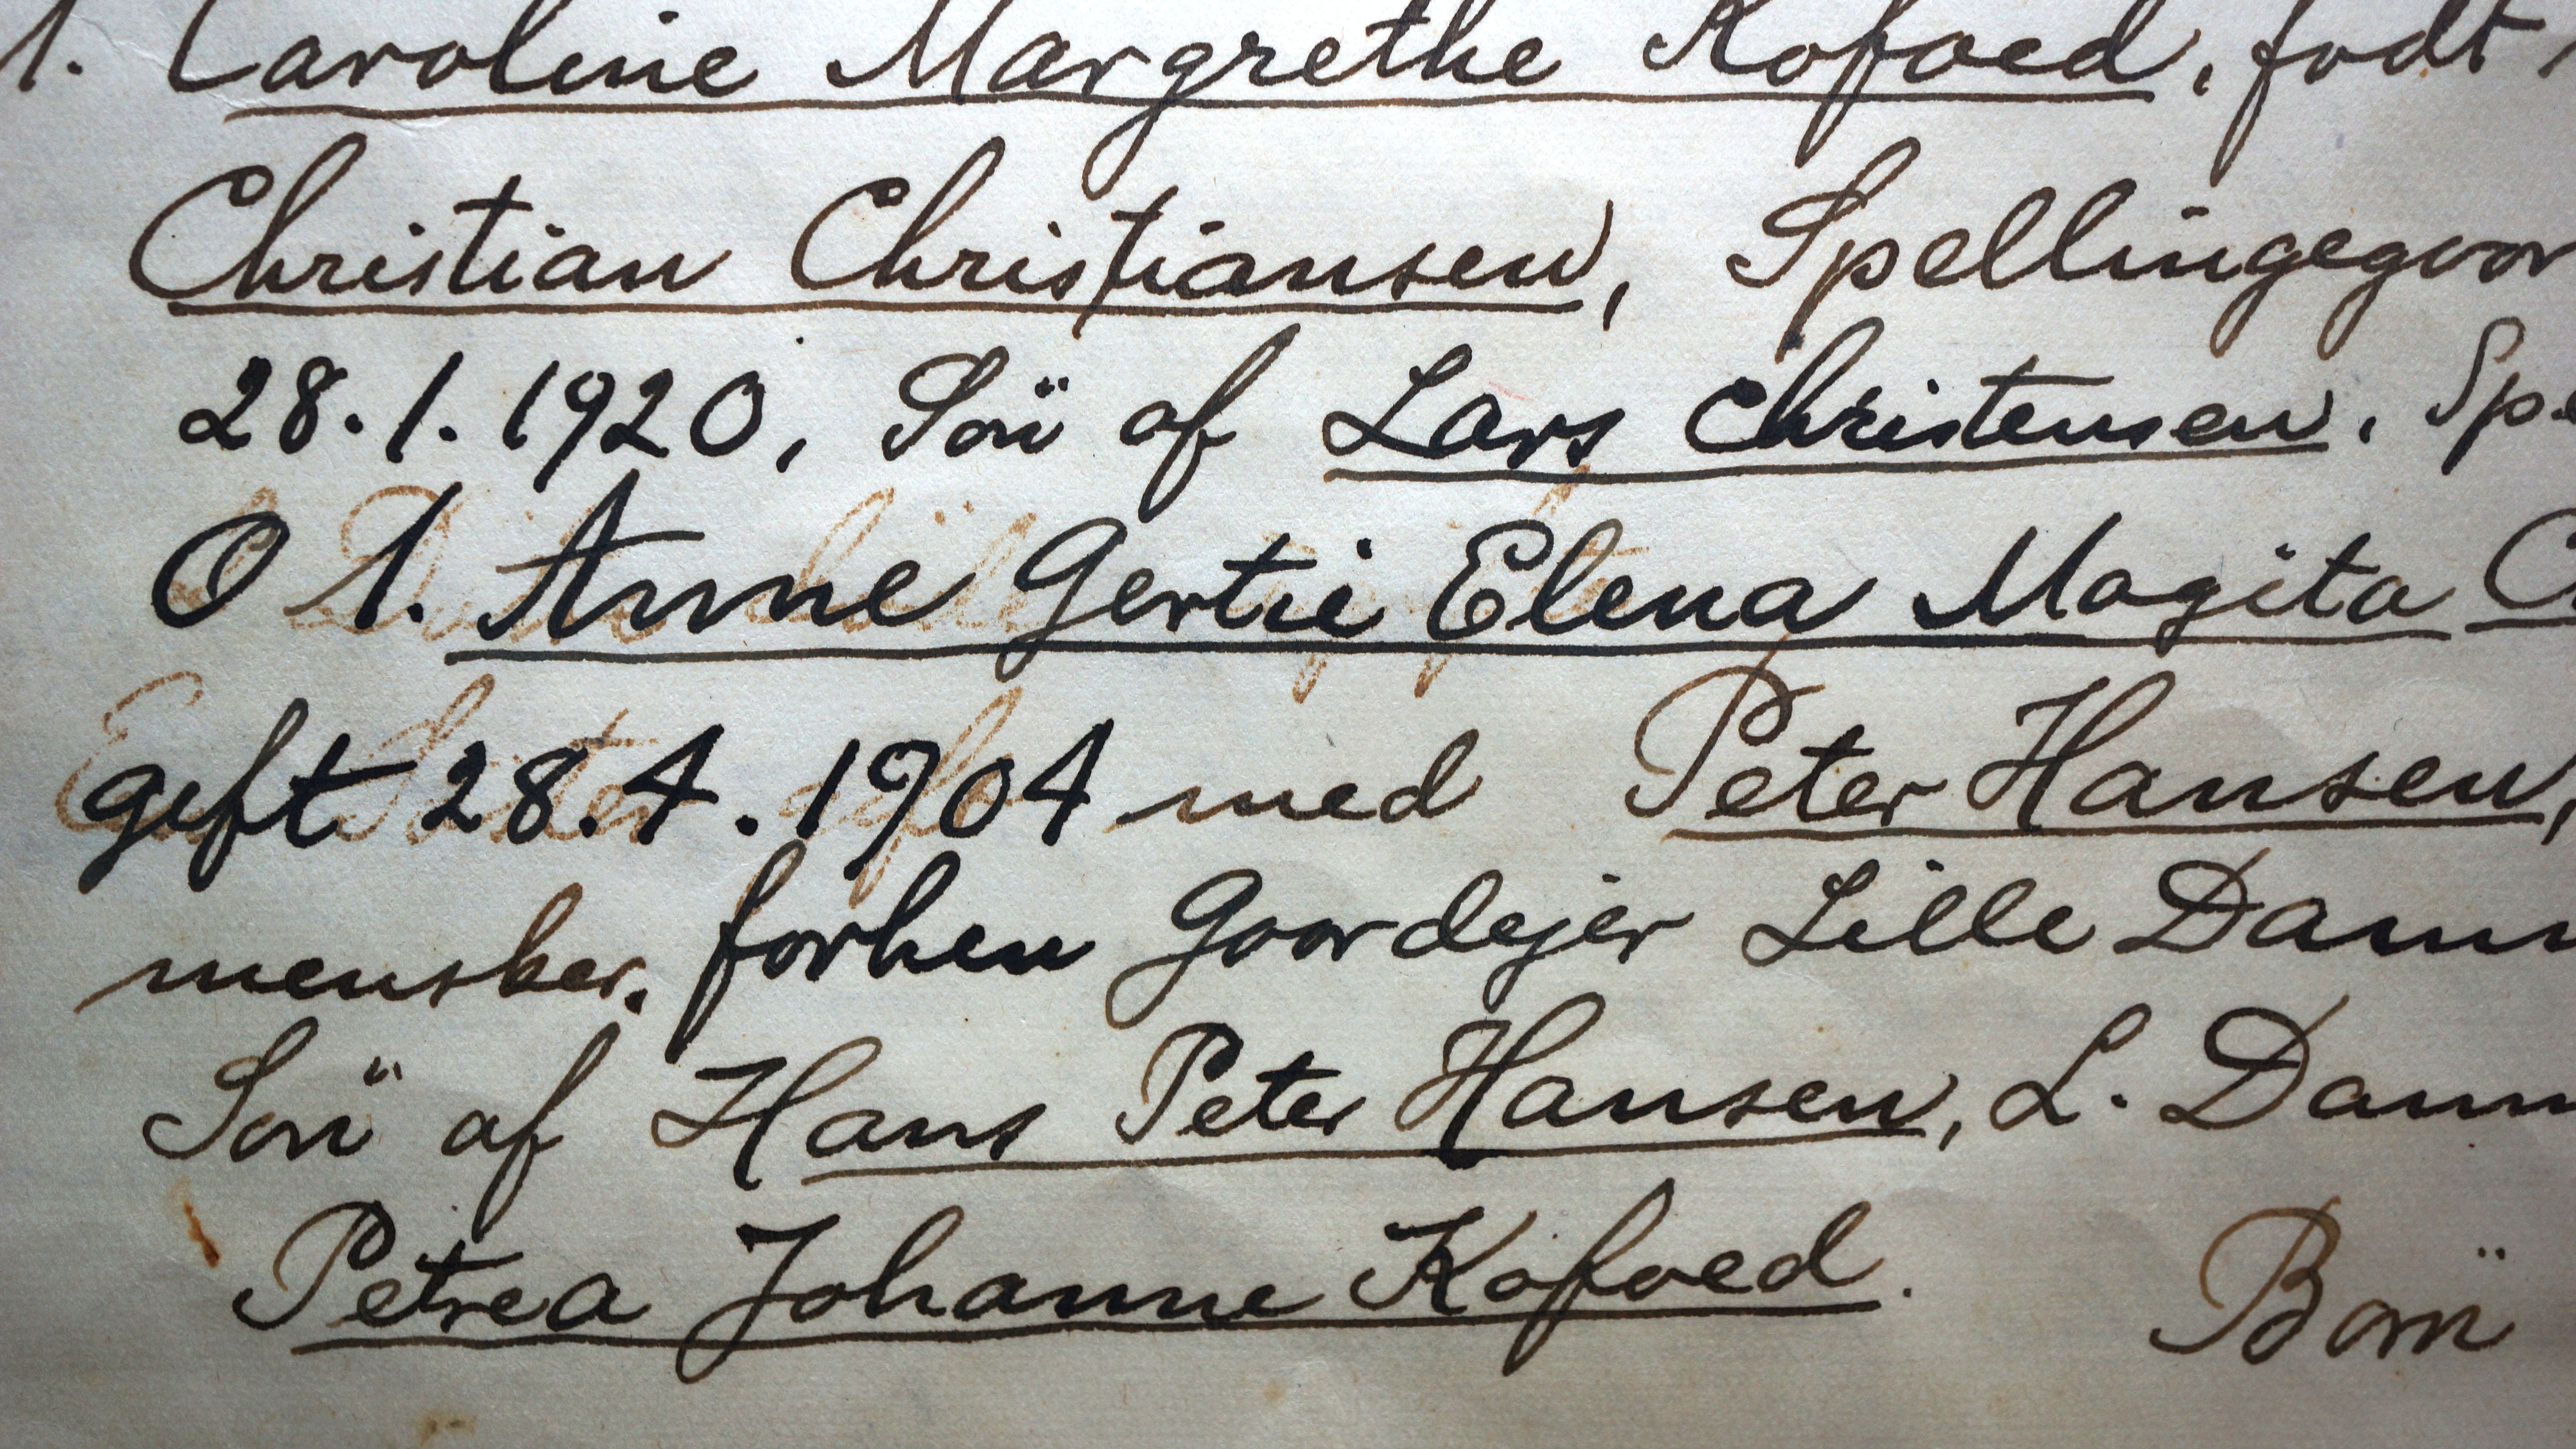 1. Caroline Margrethe Kofoed, fodt
Christian Christiansen, Spellingegoor
28.1.1920, Sön af Lars Christensen, Sp.
O 1. Anne Gertie Elena Magita C
gift 28.4.1904 med Peter Hansen,
mensker. forhen Goordejer Lille Dam
Sön af Hans Peter Hansen, L. Dam
Petrea Johanne Kofoed. Börn